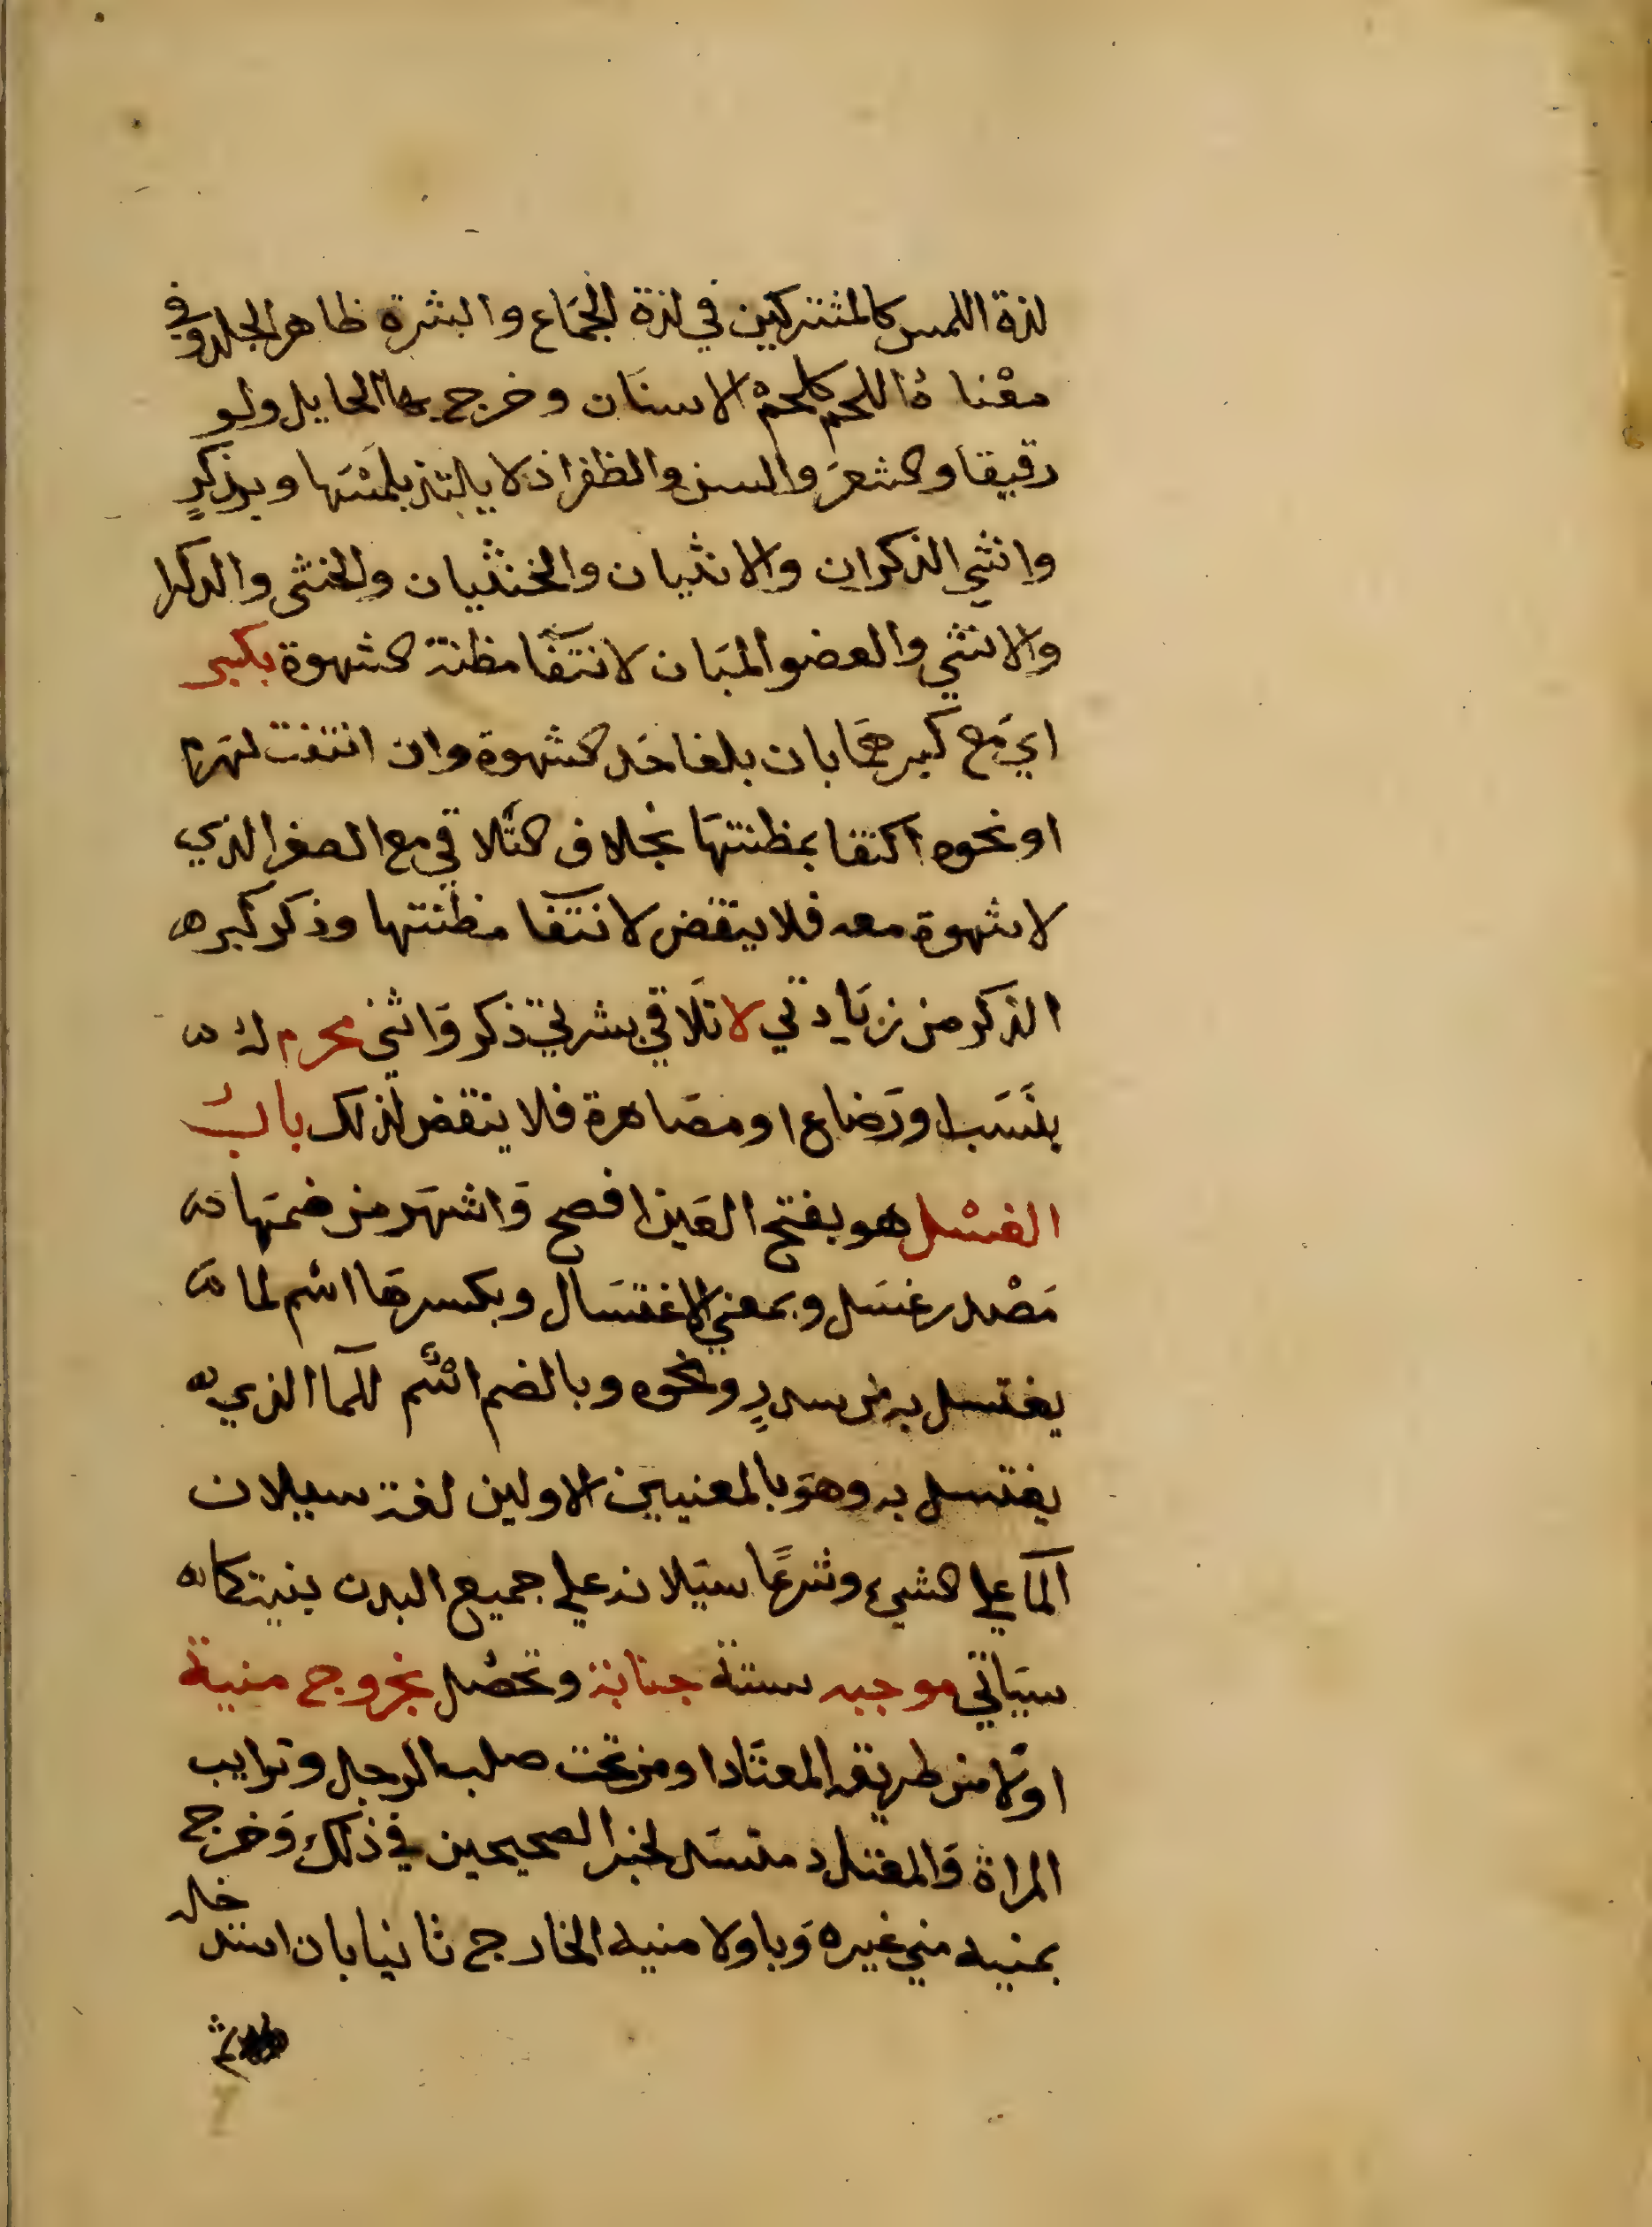 لذة اللمس كالمشتركين في لذة الجماع والبشرة ظاهر الجلد وفي
معناها اللحم كلحم الاسنان وخرج بها الحايل ولو
رقيقا والشعر والسن والظفر اذ لا يلتذ بلمسها وبذكرٍ
وانثي الذكران والانثيان والخنثيان والخنثى والذكر
والانثي والعضو المبان لانتفآ مظنة الشهوة بكبر
اي مع كبرهما بان بلغا حد الشهوة وان انتفت لهرم
او نحوه اكتفا بمظنتها بخلاف التلاقي مع الصغر الذي
لا شهوة معه فلا ينقض لانتفآ مظنتها وذكر كبره
الذكر من زيادتي لا تلاقي بشرتي ذكر وانثي محرم له
بنسب او رضاع او مصاهرة فلا ينقض لذلك باب
الغسل هو بفتح الغين افصح واشهر من ضمها
مصدر غسل وبمعني الاغتسال وبكسرها اسم لما
يغتسل به من سدرٍ ونحوه وبالضم اسم للمآ الذي
يغتسل به وهو بالمعنيين الاولين لغة سيلان
المآ علي الشيء وشرعًا سيلانه علي جميع البدن بنية كما
سياتي موجبه ستة جنابة وتحصل بخروج منيه
اولا من طريقه المعتاد او من تحت صلب الرجل وترايب
المراة والمعتاد منسد لخبر الصحيحين في ذلك وخرج
بمنيه مني غيره وباولا منيه الخارج ثانيا بان استدخله
ثم